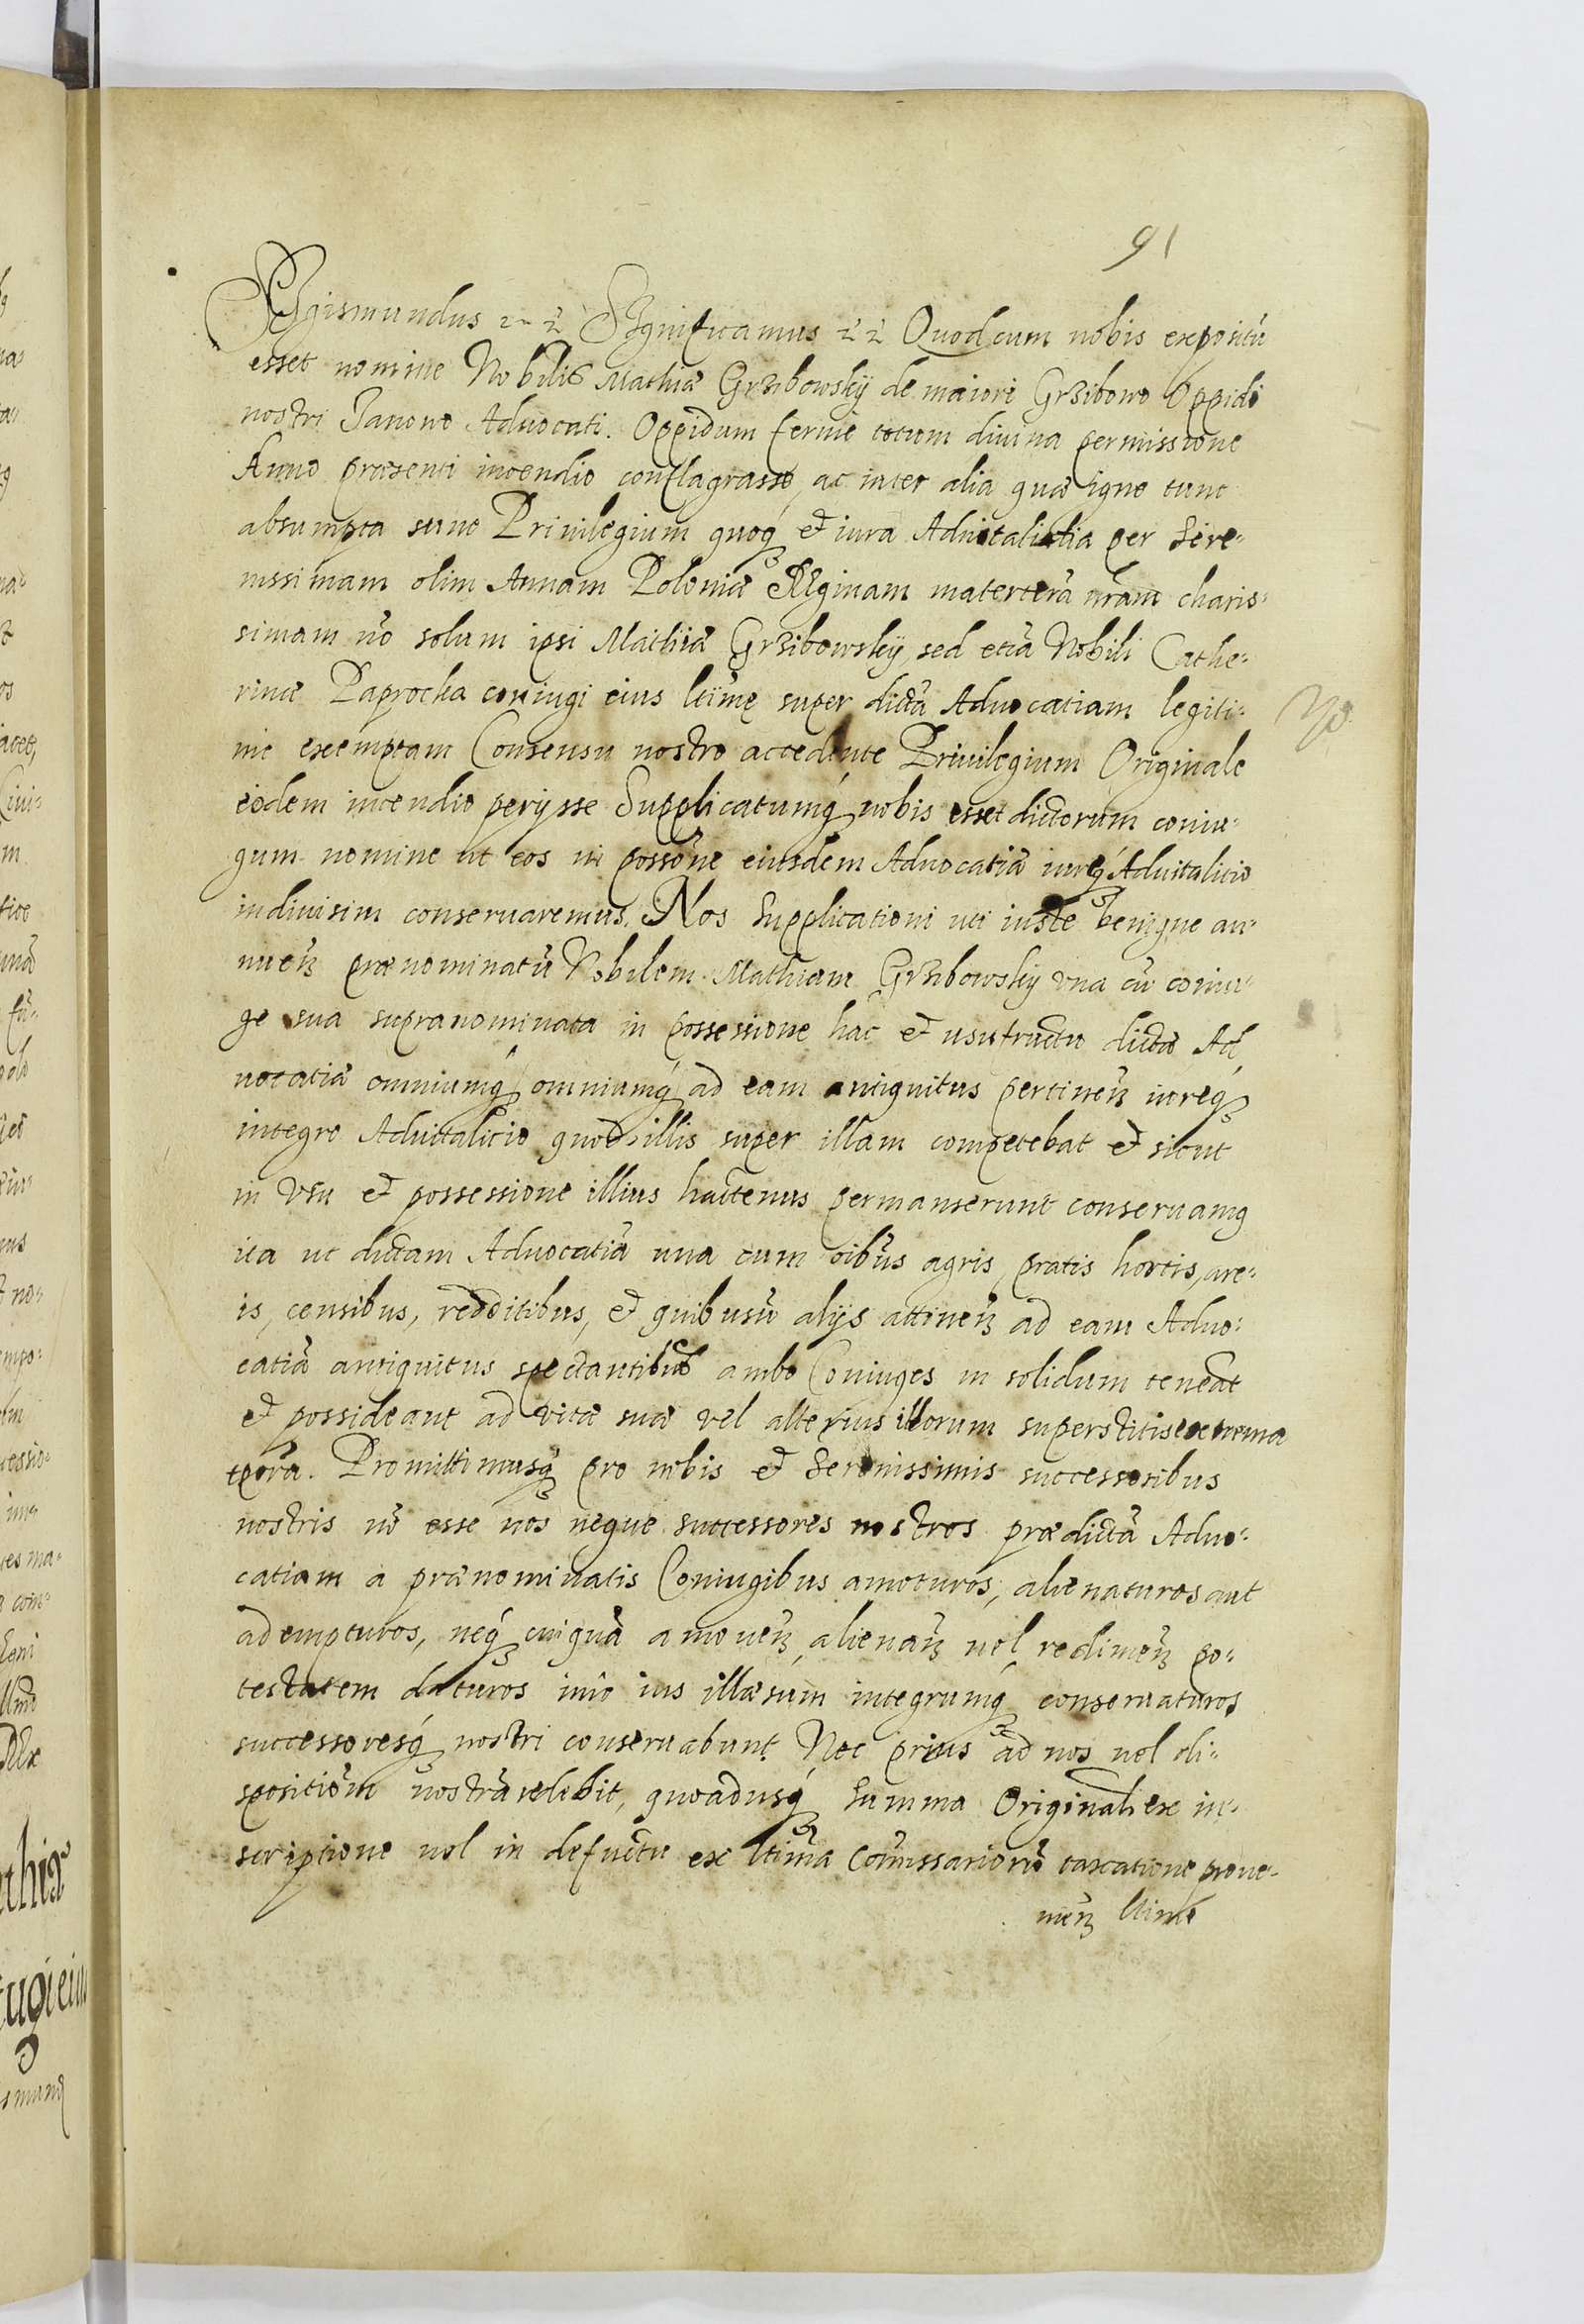 91
Sigismundus etc. etc. Significamus etc. etc. Quod cum nobis expositũ
esset nomine Nobilis Mathiæ Grzibowskÿ de maiori Grzibowo Oppidi
nostri Janowo Aduocati. Oppidum ferme totum diuina permissione
Anno præsenti incendio conflagrasse, ac inter alia quæ igne tunc
absumpta sunt Priuilegium quoq₃ et iura Aduitalitia per Sere-
nissimam olim Annam Poloniæ Reginam materterã nrãm charis-
simam nõ solum ipsi Mathiæ Grzibowskÿ, sed etiã Nobili Cathe-
rinæ Paprocka coniugi eius ltimę super dictã Aduocatiam legiti-
me exemptam Consensu nostro accedente Priuilegium Originale
eodem incendio perÿsse Supplicatumq́ nobis esset dictorum coniu-
gum nomine ut eos in possõne eiusdem Aduocatiæ iureq́ Aduitalitio
indiuisim conseruaremus. Nos Supplicationi uti iustæ benigne an-
nuen͂ prænominatũ Nobilem Mathiam Grzibowskÿ vna cũ coniu-
ge sua supranominata in possessione hac et usufructu dictæ Ad
uocatiæ omniumq́ omniumq́ ad eam antiquitus pertinen͂ iureq₃
integro Aduitalitio quod illis super illam competebat et sicut
in vsu et possessione illius hactenus permanserunt conseruamq
ita ut dictam Aduocatiã una cum oibus agris, pratis hortis, are-
is, censibus, redditibus, et quibusũ alÿs attinen͂ ad eam Aduo-
catiã antiquitus spectantibus ambo Coniuges in solidum teneãt
et possideant ad vitæ suæ vel alterius illorum superstitis extrema
tpõra. Promittimusq́ pro nobis et Serenissimis successoribus
nostris nõ esse nos neque successores nostros prædictã Aduo-
catiam a prænominatis Coniugibus amoturos, alienaturos aut
adempturos, neq́ cuiquã amouen͂, alienan͂ uel redimen͂ po-
testatem daturos imo ius illæsum integrumq́ conseruaturos
successoresq́ nostri conseruabunt. Nec prius ad nos uel di-
spositiõm nostrã redibit, quoadusq́ Summa Originali ex in-
scriptione uel in defectu ex ltima Comissariorũ taxatione proue-
nien͂ ltime